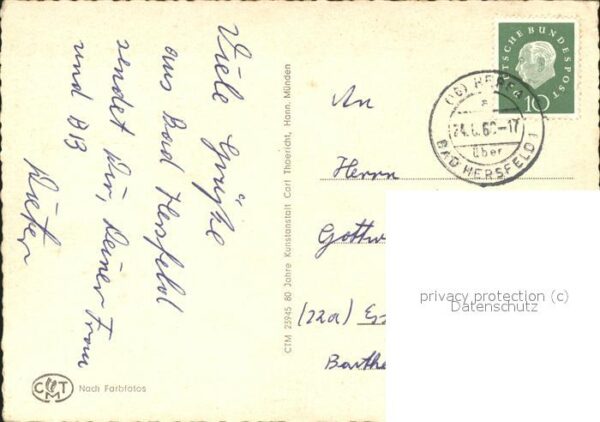 Viele Grüße
aus Bad Hersfeld
sendet Dir, Deiner Frau
und
CTM 23945 80 Jahre Kunstanstalt Carl Thoericht, Hann. Münden
CTM
Nach Farbfotos
An
Herrn
Gottw
(22a) Es
Barthe
DEUTSCHE BUNDESPOST
10
(16)
24.6.60-17
über
BAD HERSFELD 1
privacy protection (c)
Datenschutz